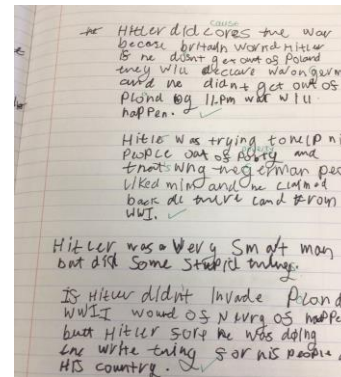 cause
Hitler did cores the war
becase britain wornd Hitler
is he didn't get out of Poland
they wiu declare war on germ
and he didn't get out of
Plond by 11.pm war wiu
happen.
Hitle was trying to help hi
people out of poverty and
that's why the german peo
liked him and he claimed
back all there land from
WWI.
Hitler was a very Smart man
but did some stupid things.
IS Hitler didn't Invade Polond
WWII wound of Nevrg of happe
butt Hitler sore he was doing
the write thing for his people
HIS country.